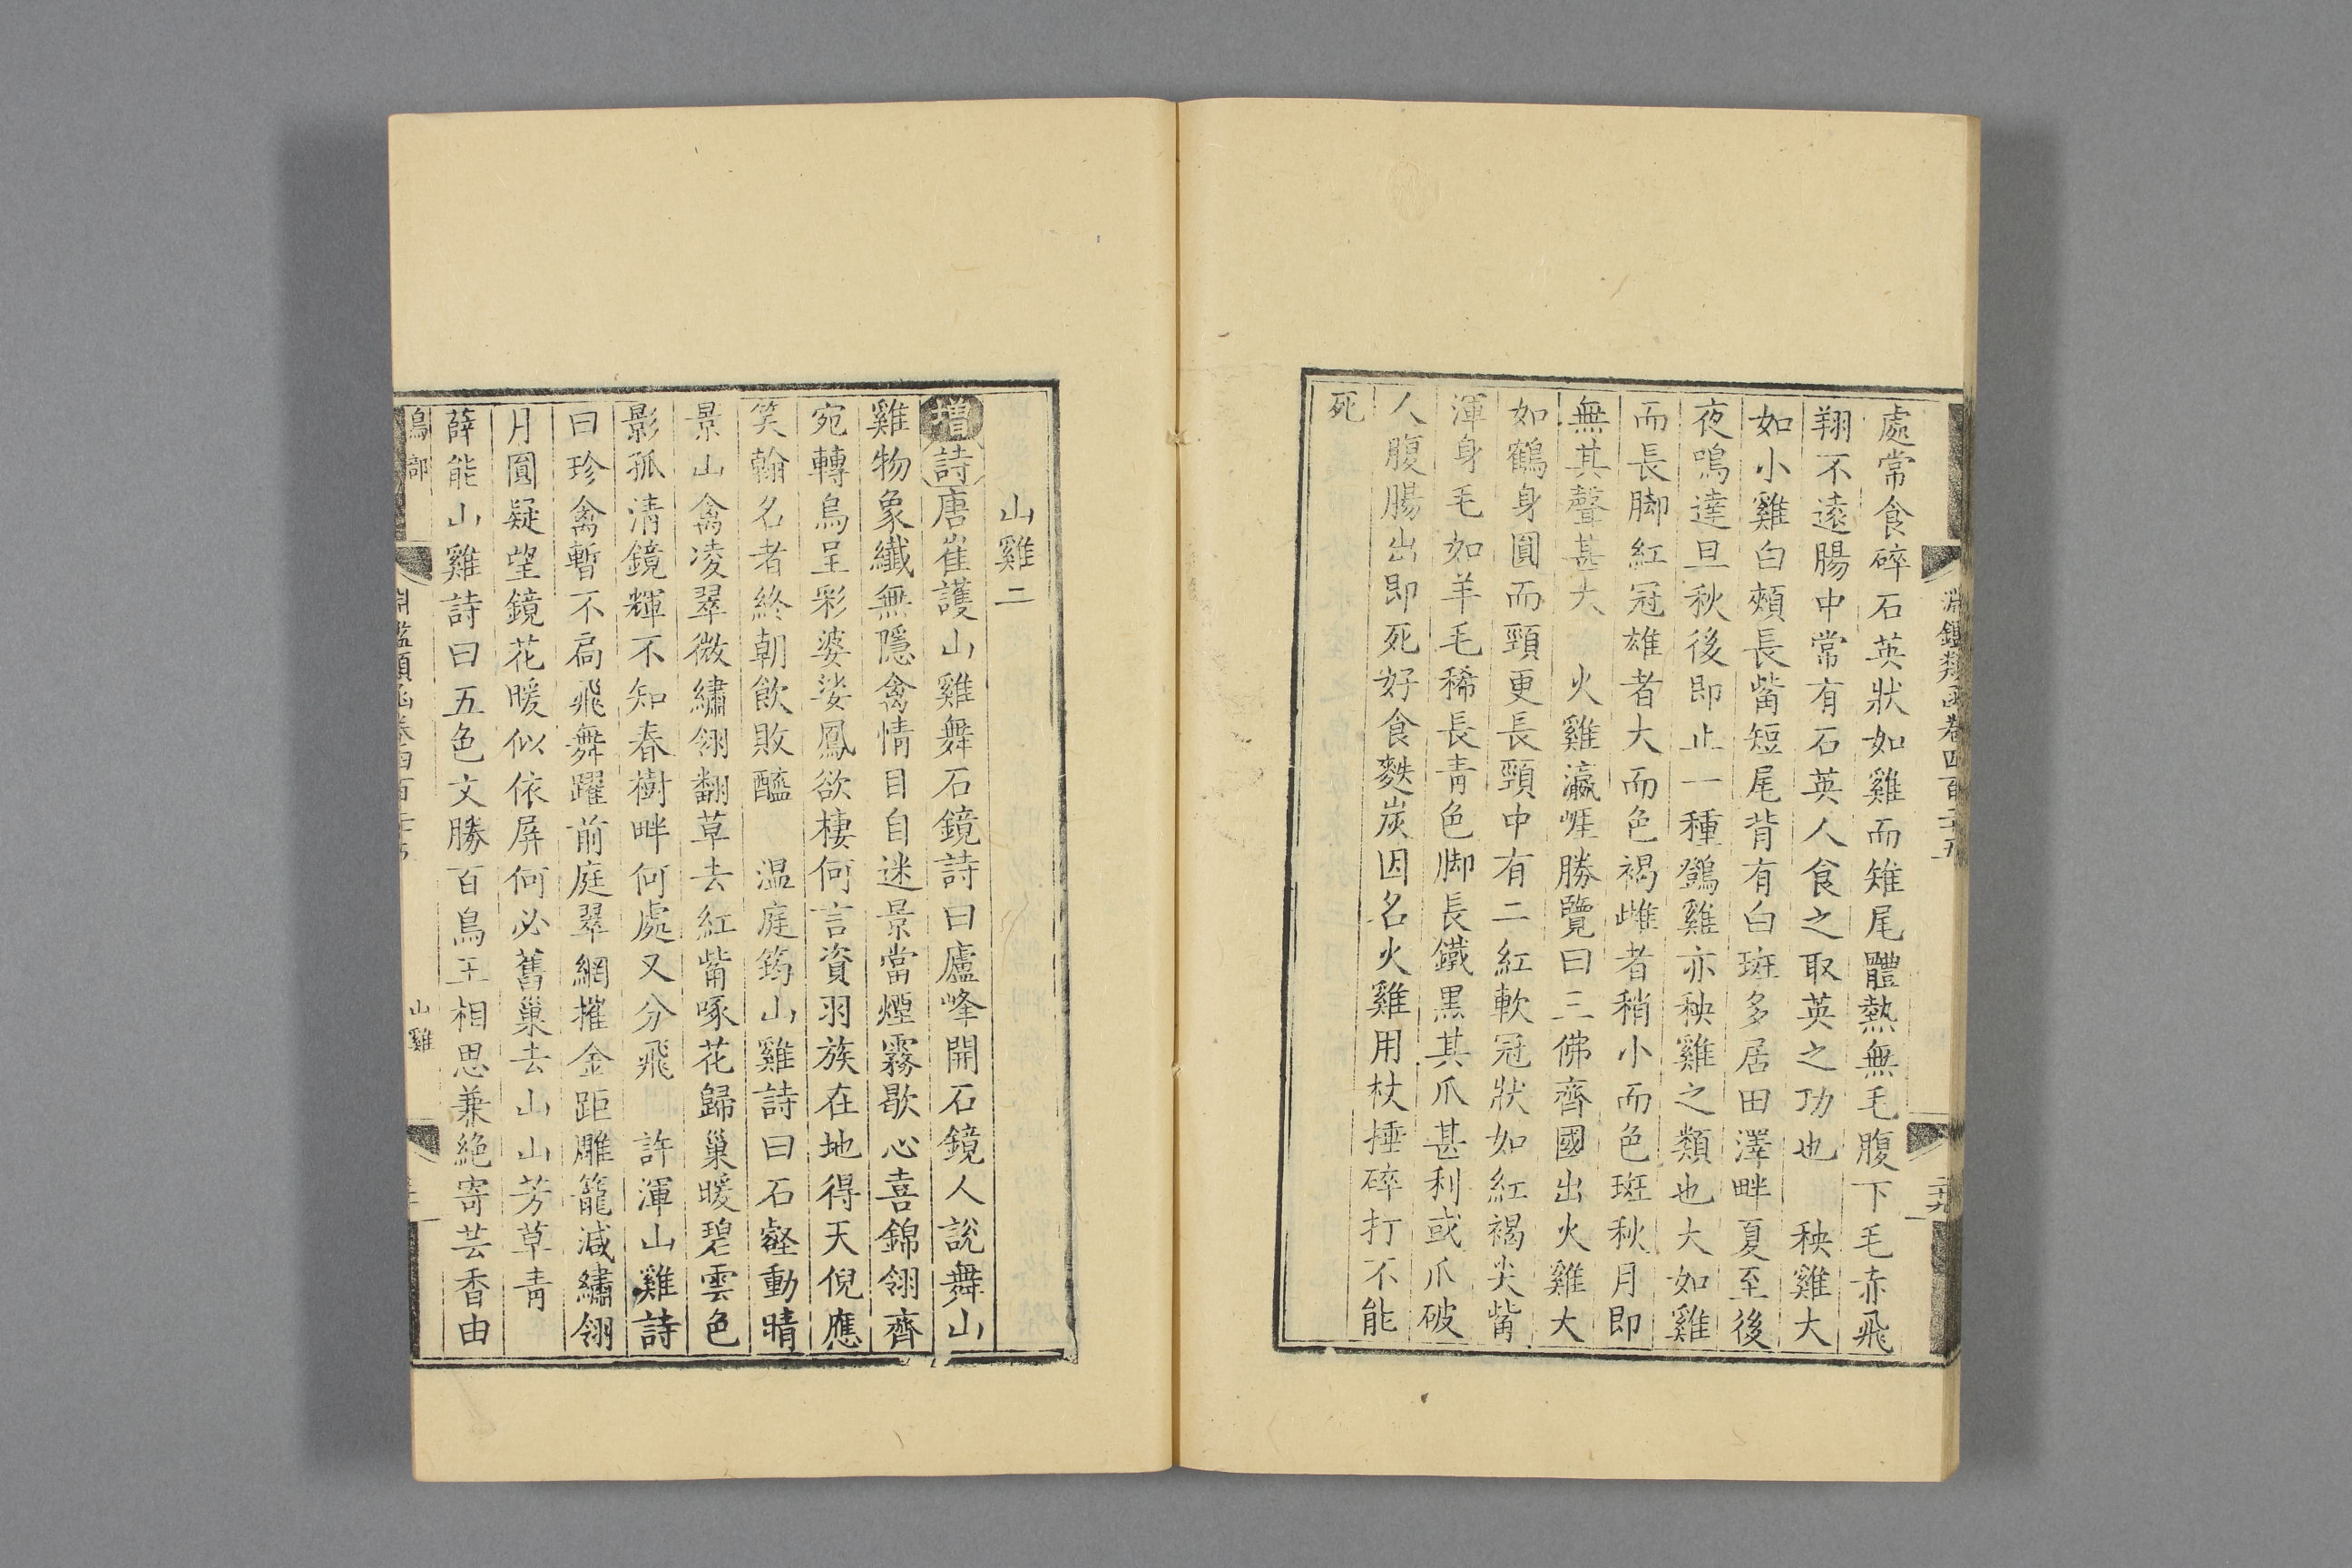 淵鑑類函卷四百二十五
二十九
處常食碎石英狀如雞而雉尾體熱無毛腹下毛赤飛
翔不遠腸中常有石英人食之取英之功也　秧雞大
如小雞白頰長觜短尾背有白斑多居田澤畔夏至後
夜鳴達旦秋後即止一種鷭雞亦秧雞之類也大如雞
而長脚紅冠雄者大而色褐雌者稍小而色斑秋月即
無其聲甚大　火雞瀛崕勝覽曰三佛齊國出火雞大
如鶴身圓而頸更長頸中有二紅軟冠狀如紅褐尖觜
渾身毛如羊毛稀長青色脚長鐵黑其爪甚利或爪破
人腹腸出即死好食麩炭因名火雞用杖捶碎打不能
死
山雞二
增詩唐崔護山雞舞石鏡詩曰廬峰開石鏡人說舞山
雞物象纖無隱禽情目自迷景當煙霧歇心喜錦翎齊
宛轉烏呈彩婆娑鳳欲棲何言資羽族在地得天倪應
笑翰名者終朝飲敗醯　温庭筠山雞詩曰石壑動晴
景山禽凌翠微繡翎翻草去紅觜啄花歸巢暖碧雲色
影孤清鏡輝不知春樹畔何處又分飛　許渾山雞詩
曰珍禽暫不扃飛舞躍前庭翠網摧金距雕籠減繡翎
月圓疑望鏡花暖似依屏何必舊巢去山山芳草青
薛能山雞詩曰五色文勝百鳥王相思兼絕寄芸香由
鳥部
淵鑑類函卷四百二十五
山雞